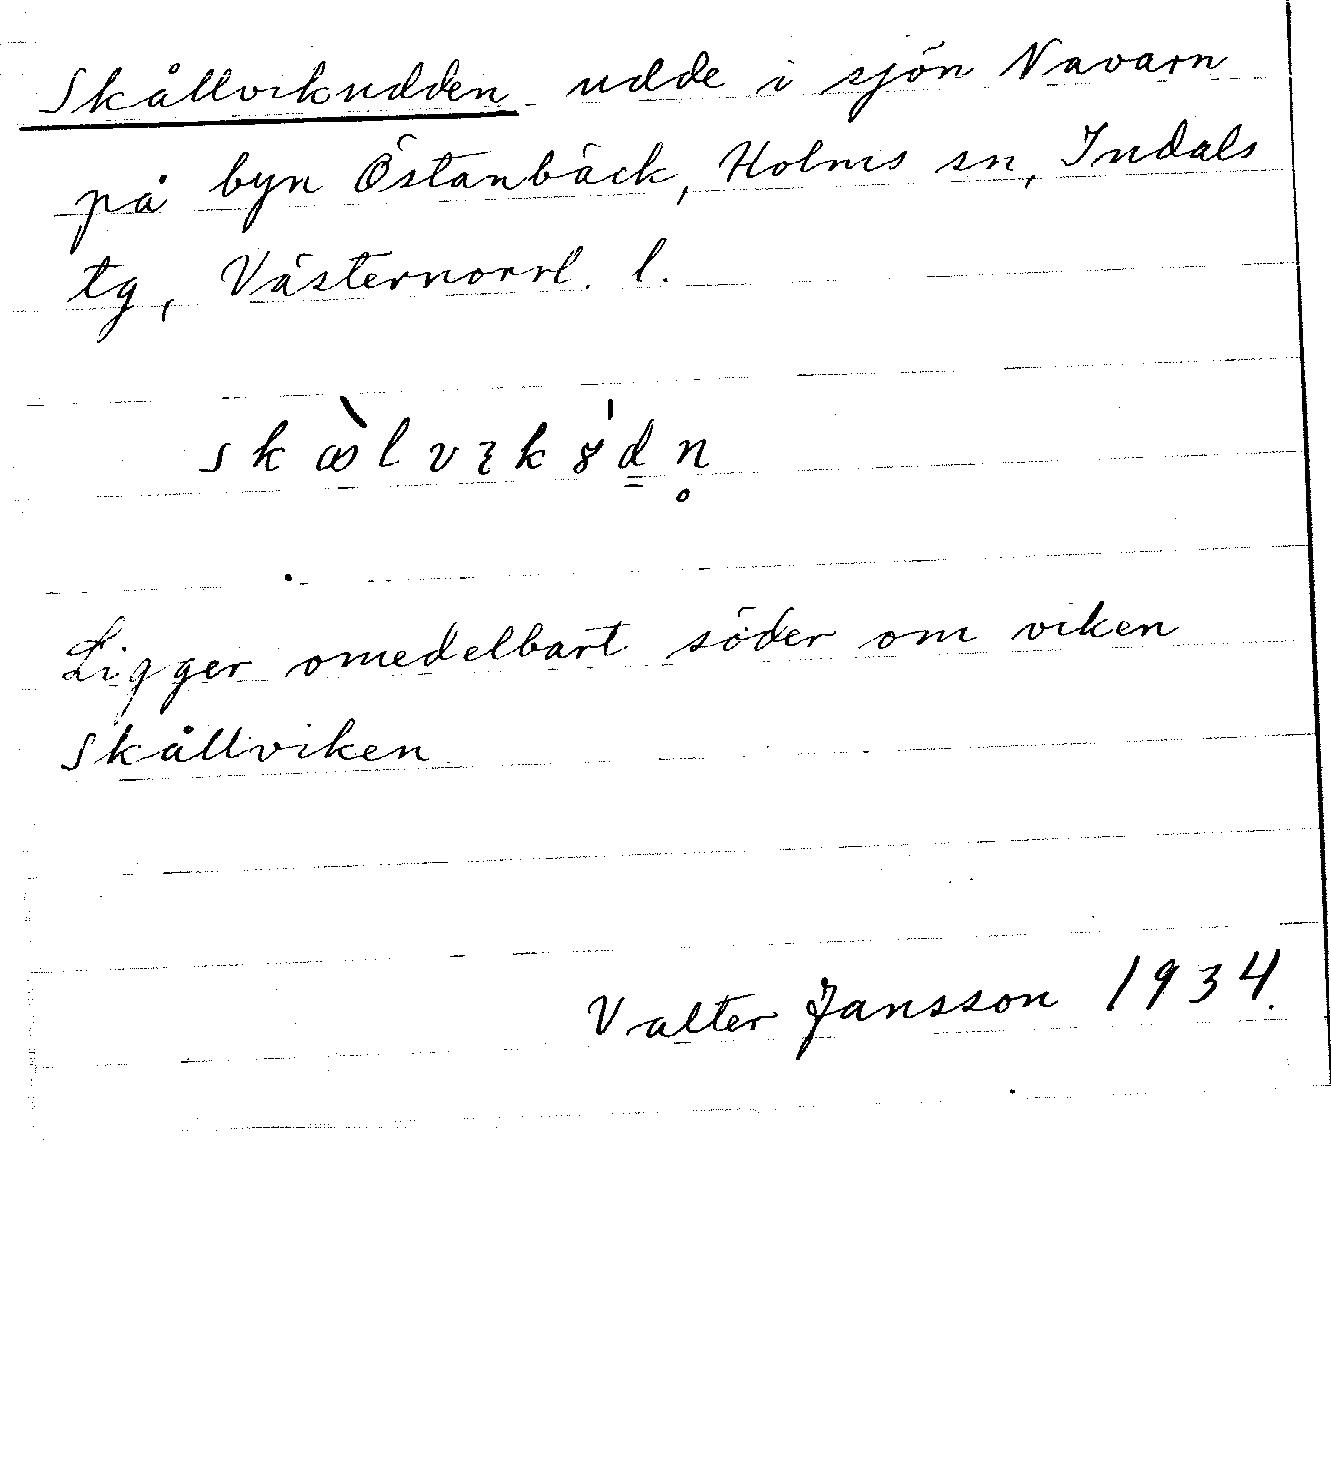 Skållvikudden udde i sjön Navarn
på byn Östanbäck, Holms sn, Indals
tg, Västernorrl. l.
Ligger omedelbart söder om viken
Skållviken
Valter Jansson 1934.